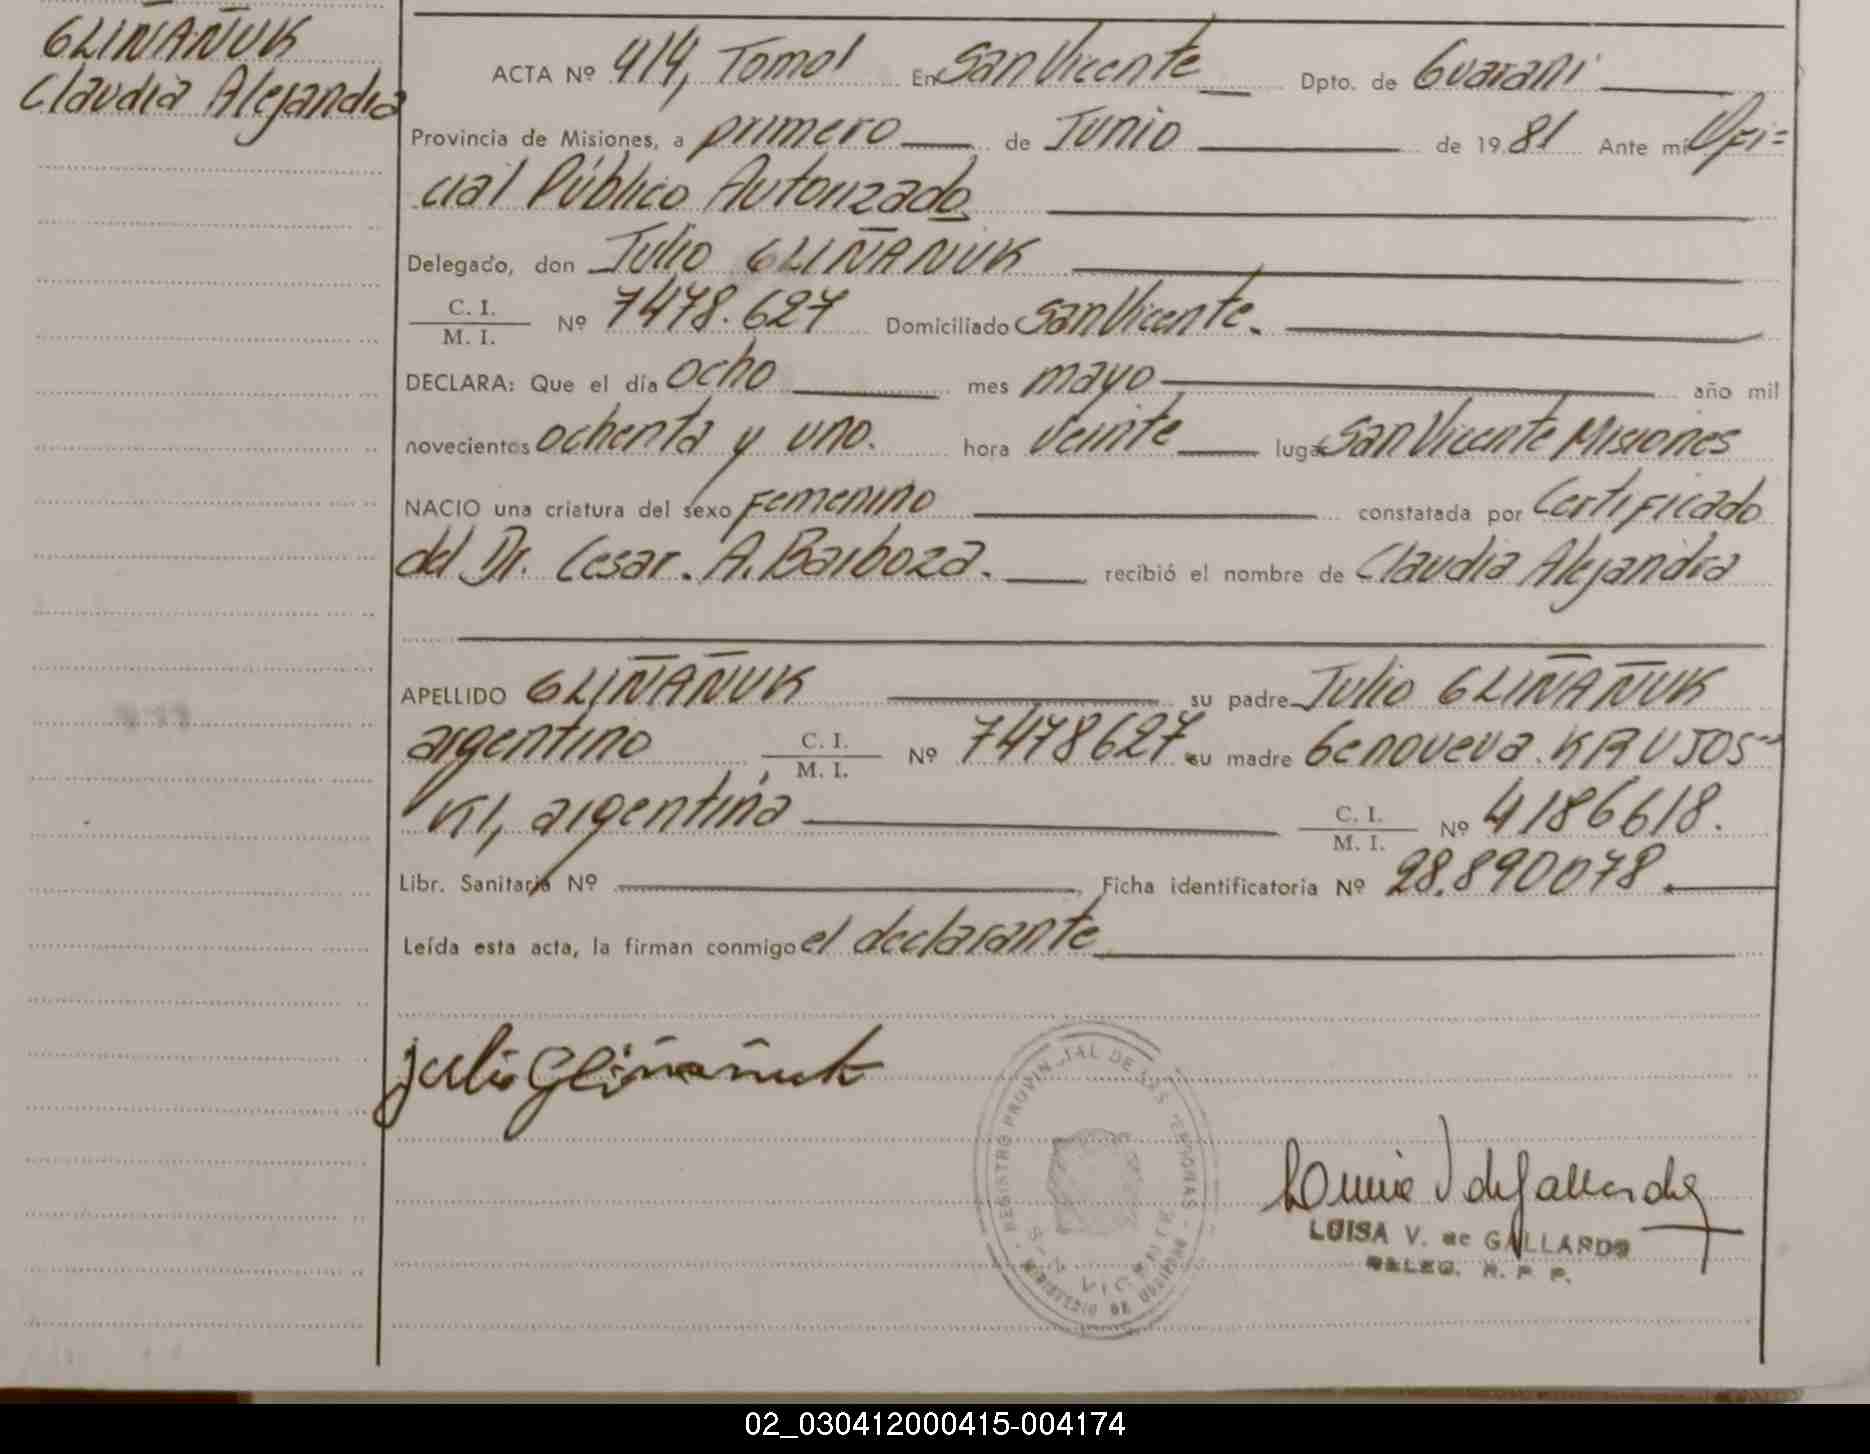 GLIÑAÑUK
Claudia Alejandra
ACTA Nº 414, Tomo I En San Vicente Dpto. de Guaraní
Provincia de Misiones, a primero de Junio de 1981 Ante mi Ofi=
cial Público Autorizado.
Delegado, don Julio GLIÑANUK
C. I.
M. I. Nº 7478.627 Domiciliado San Vicente.
DECLARA: Que el día ocho mes mayo año mil
novecientos ochenta y uno. hora veinte lugar San Vicente Misiones
NACIO una criatura del sexo Femenino constatada por Certificado
del Dr. Cesar. A. Barboza. recibió el nombre de Claudia Alejandra
APELLIDO GLIÑAÑUK su padre Julio GLIÑAÑUK
argentino C. I.
M. I. Nº 7478627 su madre Genoveva KRUJOS-
KI, argentina C. I.
M. I. Nº 4186618.
Libr. Sanitaria Nº Ficha identificatoria Nº 28.890078.
Leída esta acta, la firman conmigo el declarante
Julio Gliñañuk
REGISTRO PROVINCIAL DE LAS PERSONAS
SAN VICENTE
LUISA V. de GALLARDO
DELEG. R. P. P.
02_030412000415-004174